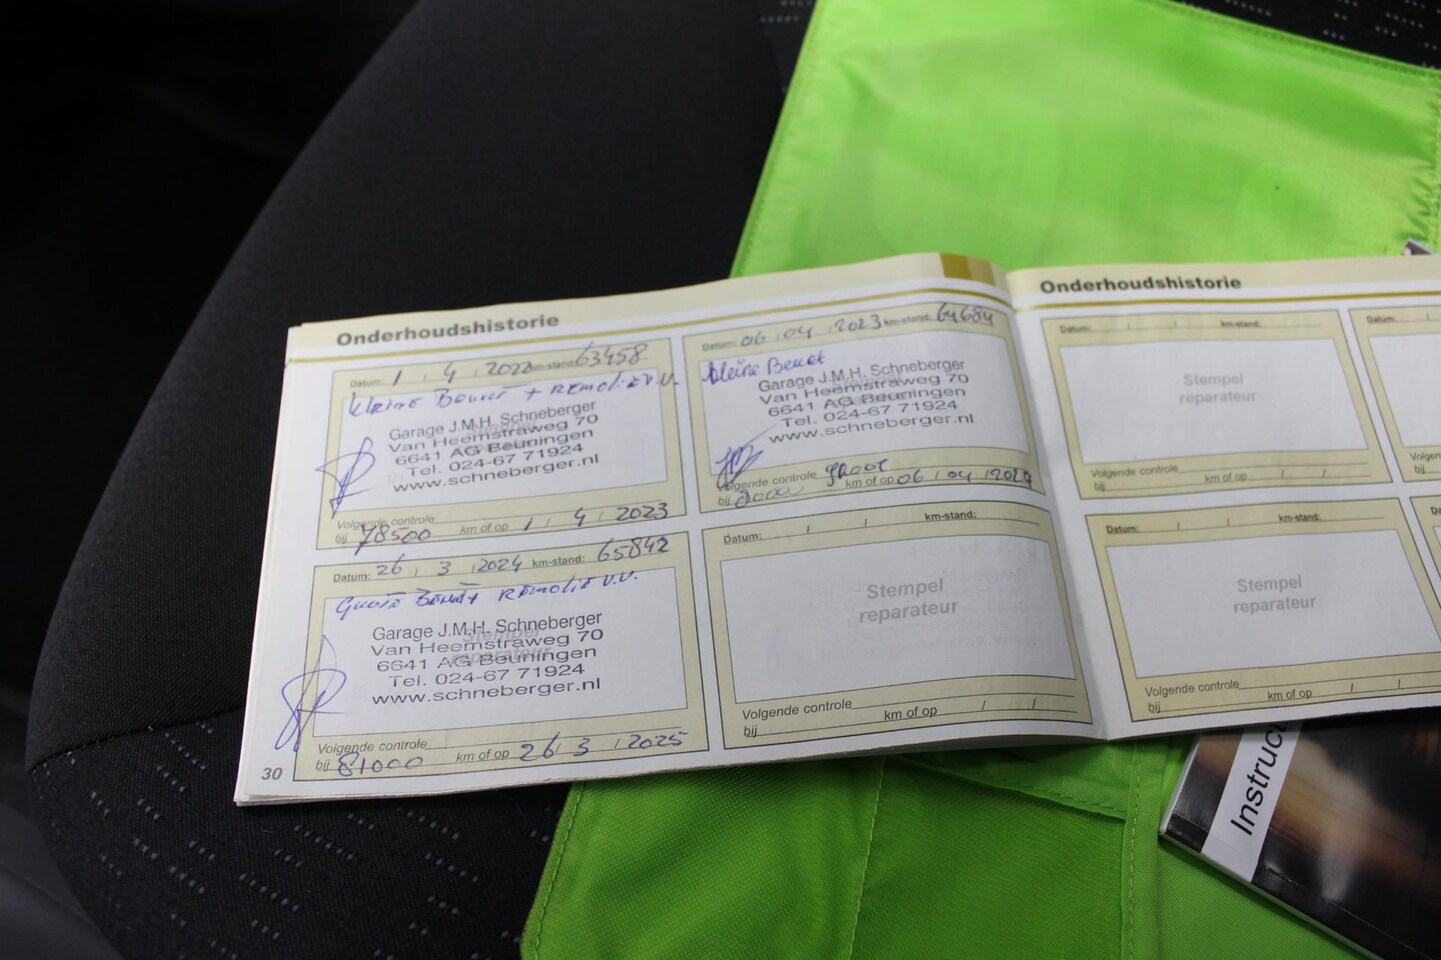 Onderhoudshistorie
Datum: 1 / 4 / 2022 km-stand: 63458
Kleine Beurt + Remolie v.v.
Garage J.M.H. Schneberger
Van Heemstraweg 70
6641 AG Beuningen
Tel. 024-67 71924
www.schneberger.nl
Volgende controle
bij 78500 km of op 1 / 4 / 2023
Datum: 06 / 04 / 2023 km-stand: 64684
kleine Beurt
Garage J.M.H. Schneberger
Van Heemstraweg 70
6641 AG Beuningen
Tel. 024-67 71924
www.schneberger.nl
Volgende controle groot
bij km of op 06 / 04 / 2024
Datum: 26 / 3 / 2024 km-stand: 65842
Grote Beurt Remolie v.v.
Stempel
reparateur
Garage J.M.H. Schneberger
Van Heemstraweg 70
6641 AG Beuningen
Tel. 024-67 71924
www.schneberger.nl
Volgende controle
bij 81000 km of op 26 / 3 / 2025
Datum: / / km-stand:
Stempel
reparateur
Volgende controle
bij km of op / /
30
Onderhoudshistorie
Datum: / / km-stand:
Stempel
reparateur
Volgende controle
bij km of op / /
Datum: /
Datum: / / km-stand:
Stempel
reparateur
Volgende controle
bij km of op / /
bij
Instruc